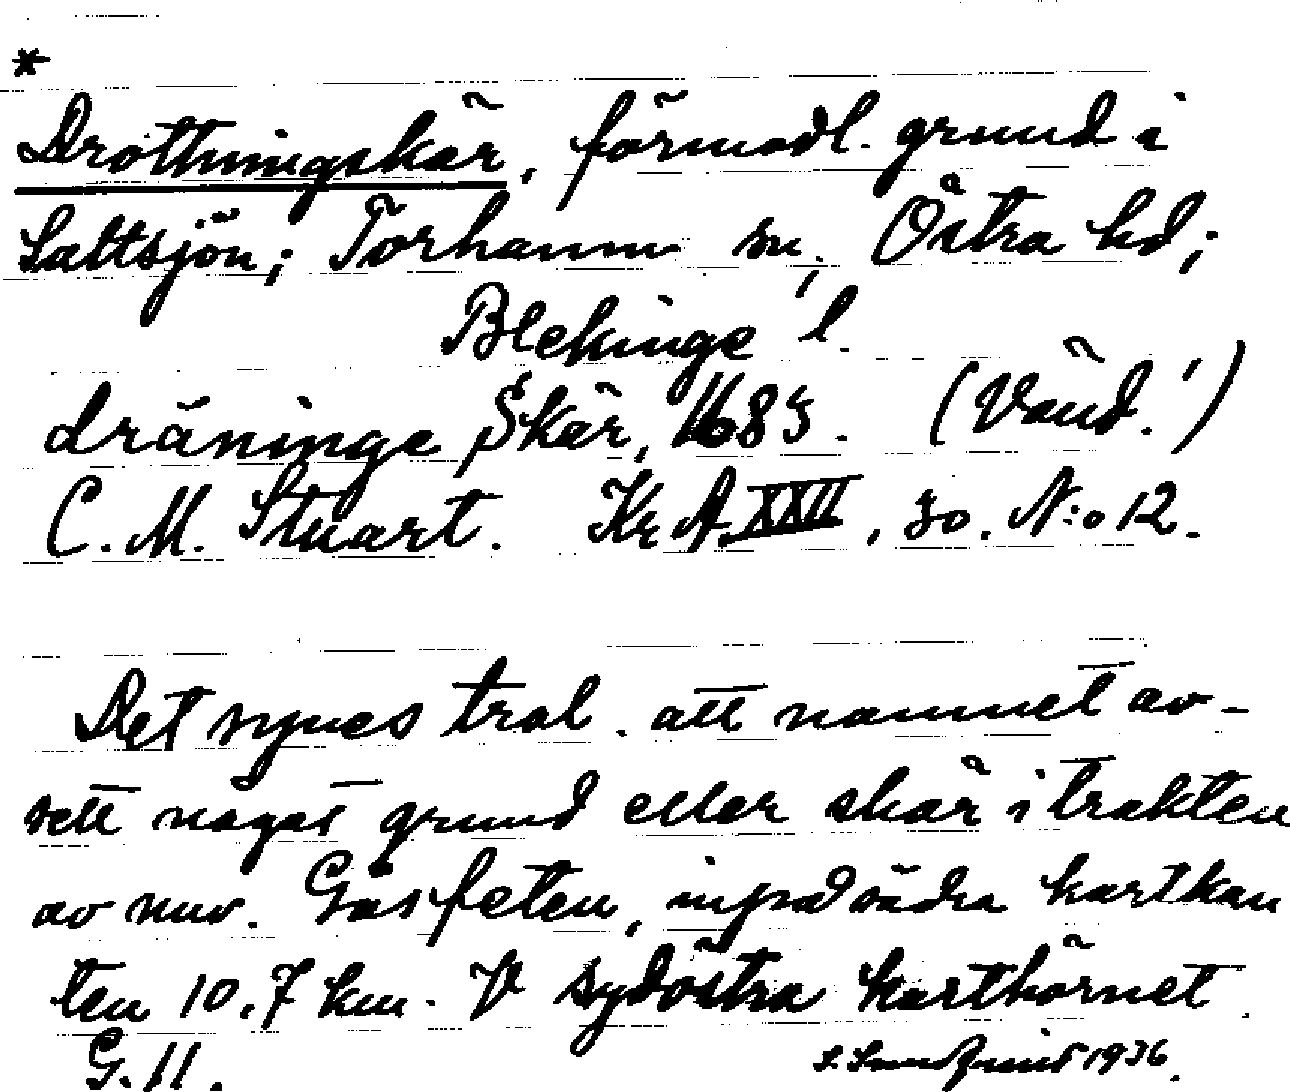 *
Drottningskär, förmodl. grund i
Saltsjön; Torhamn sn, Östra hd;
Blekinge l.
dräninge Skär, 1685. (Vänd!)
C. M. Stuart. Kr A. XXII, 30. N:o 12.
Det synes trol. att namnet av-
sett något grund eller skär i trakten
av nuv. Gåsfeten, inpå södra kartkan
ten 10.7 km. V sydöstra karthörnet.
G. 11. 1936.